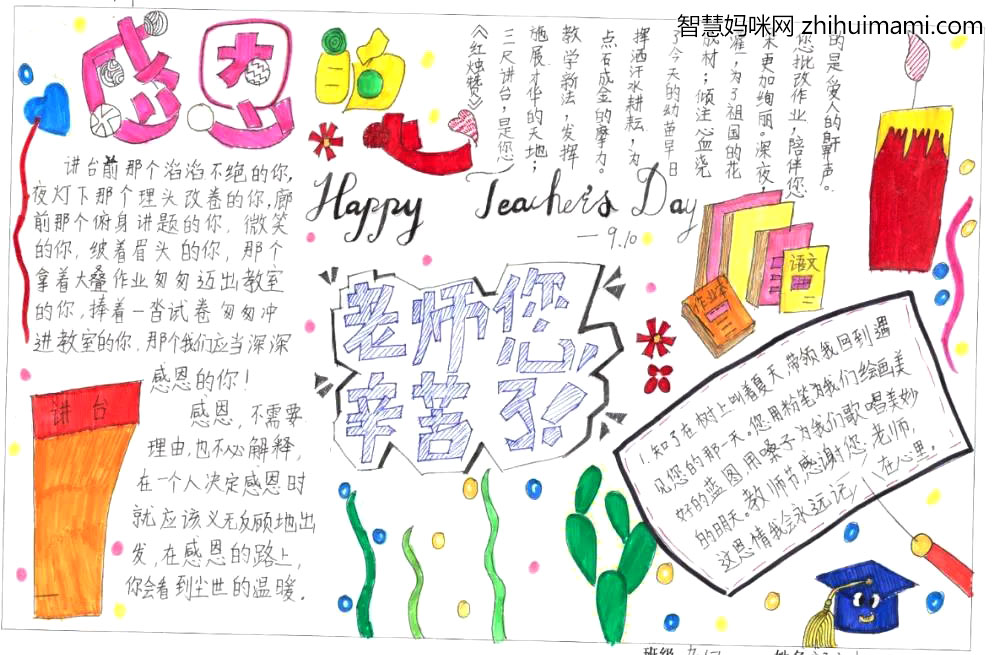 智慧妈咪网 zhihuimami.com
感恩的心
《红烛赞》
三尺讲台,是您
施展才华的天地;
教学新法,发挥
点石成金的摩力。
挥洒汗水耕耘,为
了今天的幼苗早日
成材;倾注心血浇
灌,为了祖国的花
朵更加绚丽。深夜,
您批改作业,陪伴您
的是爱人的鼾声。
讲台前那个滔滔不绝的你,
夜灯下那个埋头改卷的你,廊
前那个俯身讲题的你,微笑
的你,皱着眉头的你,那个
拿着大叠作业匆匆迈出教室
的你,捧着一沓试卷匆匆冲
进教室的你.那个我们应当深深
感恩的你!
感恩,不需要
理由,也不必解释,
在一个人决定感恩时
就应该义无反顾地出
发,在感恩的路上,
你会看到尘世的温暖。
讲台
Happy Teacher's Day
—9.10
老师您
辛苦了!
语文
作业本
1.知了在树上叫着夏天带领我回到遇
见您的那一天。您用粉笔为我们绘画美
好的蓝图用嗓子为我们歌唱美妙
的明天。教师节,感谢您,老师,
这恩情我会永远记在心里。
班级
姓名